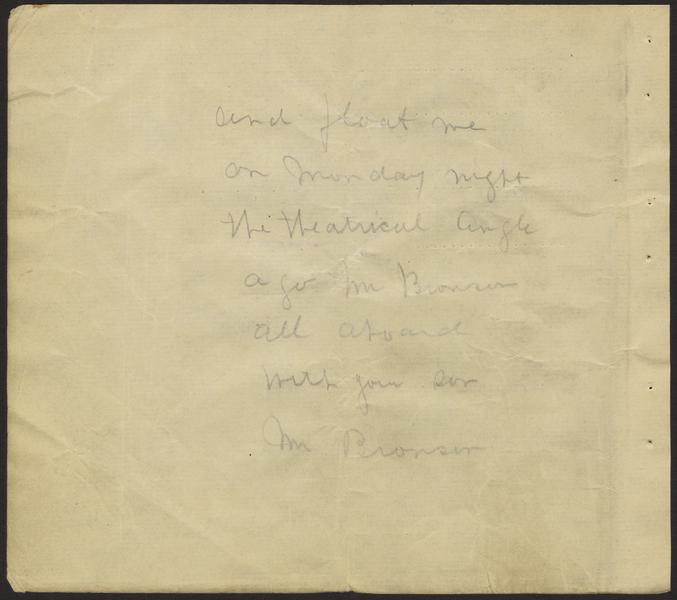 send float me
on Monday night
the theatrical angle
ago Mr Bronson
all aboard
with you son
Mr Bronson